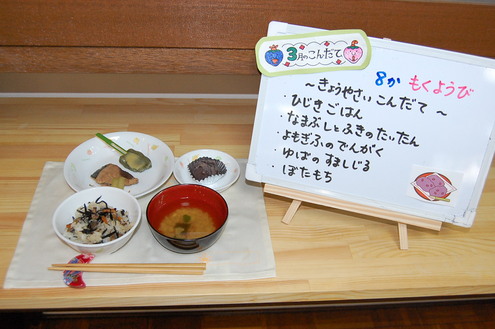 3月のこんだて
8か もくようび
～きょうやさい こんだて～
・ひじきごはん
・なまぶしとふきのたいたん
・よもぎふのでんがく
・ゆばのすましじる
・ぼたもち